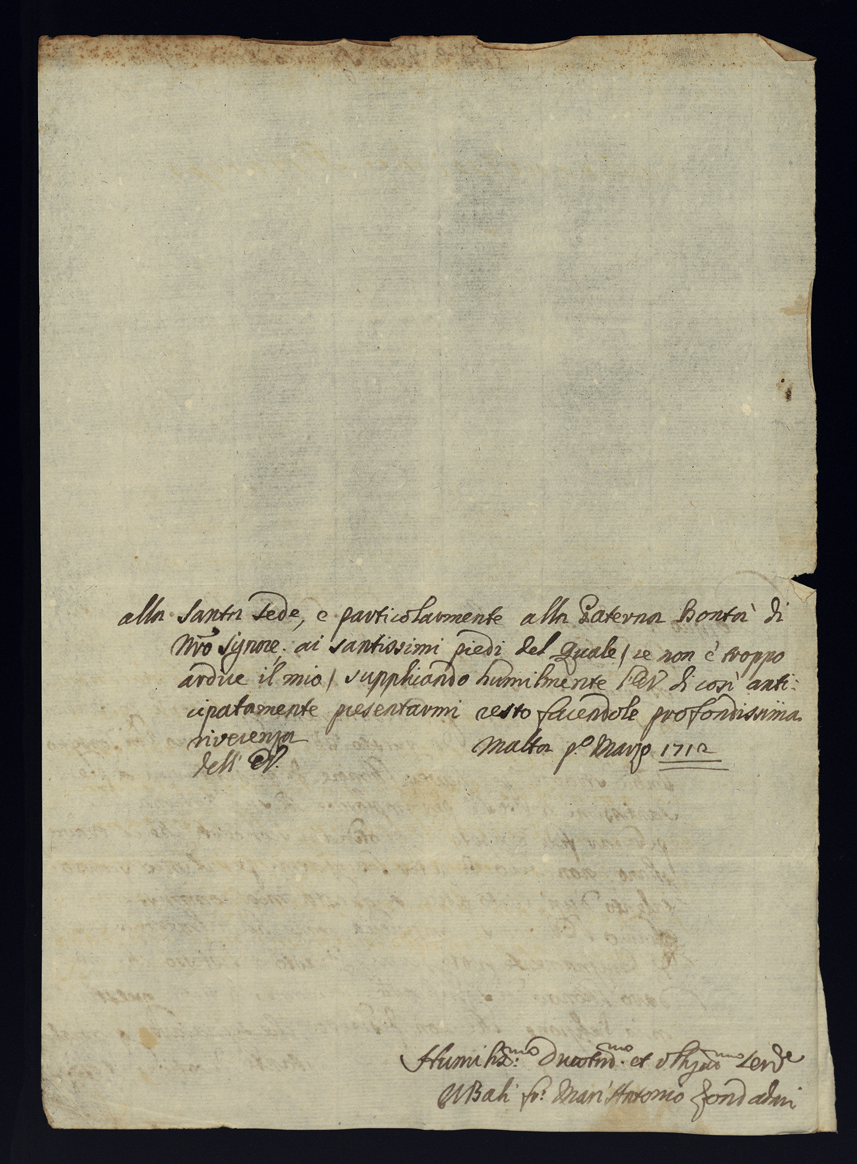 alla Santa Sede, e particolarmente alla Paterna Bontà di
Nrô Signore. ai santissimi piedi del quale / se non è troppo
ardire il mio / supplicando humilmente l'EV. di così anti:
cipatamente presentarmi resto facendole profondissima
riverenza Malta p.º Marzo 1712
dell' EV.
Humiliss.mo Devotiss.mo et Serv.e
Il Balì fr. Marc'Antonio Zondadari